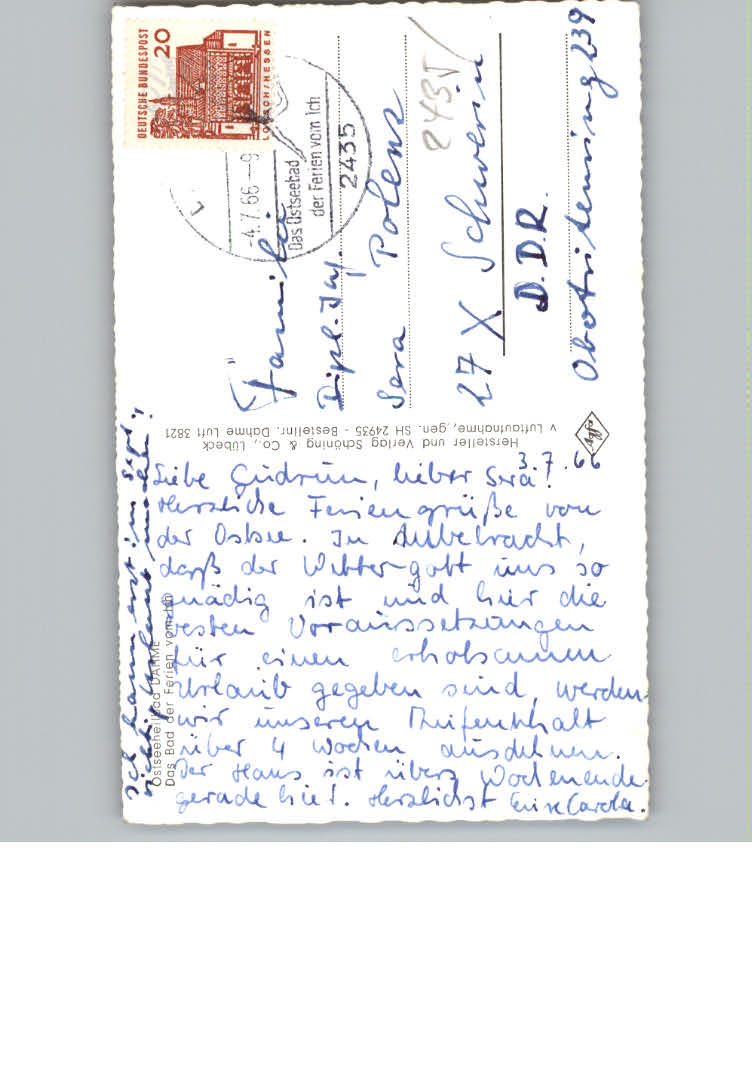 DEUTSCHE BUNDESPOST
20
LORSCH/HESSEN
-4.7.66-9
Das Ostseebad
der Ferien vom Ich
2435
2435
Familie
Dipl.-Ing.
Sera Polenz
27 X Schwerin
D.D.R.
Obotritenring 239
Hersteller und Verlag Schöning & Co., Lübeck
v Luftaufnahme, gen. SH 24935 - Bestellnr. Dahme Luft 3821
Agfa
Ostseeheilbad DAHME
Das Bad der Ferien vom Ich
3.7.66
Liebe Gudrun, lieber Sera!
Herzliche Feriengrüße von
der Ostsee. In Anbetracht,
daß der Wettergott uns so
gnädig ist und hier die
besten Voraussetzungen
für einen erholsamen
Urlaub gegeben sind, werden
wir unseren Aufenthalt
über 4 Wochen ausdehnen.
Der Hans ist übers Wochenende
gerade hier. Herzlichst Eure Carola.
Ich kann erst im Sept.
richtig Urlaub machen!